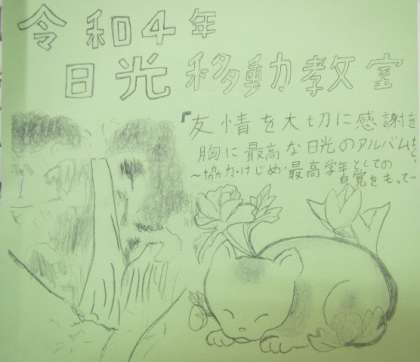 令和4年
日光移動教室
『友情を大切に感謝を
胸に最高な日光のアルバムを』
～協力・けじめ・最高学年としての
自覚をもって～